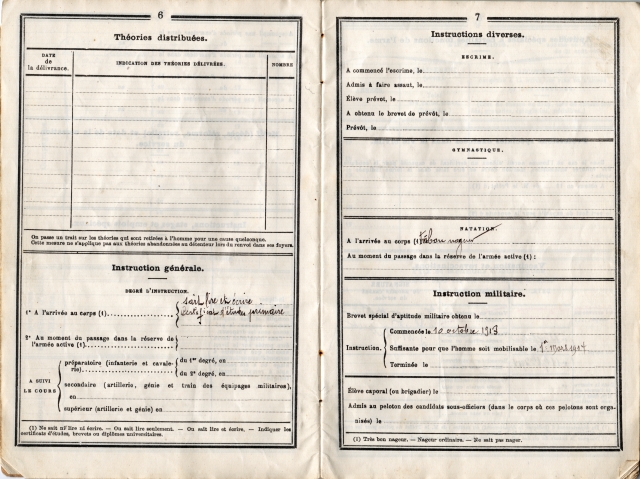 6
Théories distribuées.
DATE
de
la délivrance.
INDICATION DES THÉORIES DÉLIVRÉES.
NOMBRE
On passe un trait sur les théories qui sont retirées à l'homme pour une cause quelconque.
Cette mesure ne s'applique pas aux théories abandonnées au détenteur lors du renvoi dans ses foyers.
Instruction générale.
DEGRÉ D'INSTRUCTION.
1° A l'arrivée au corps (1)
sait lire et écrire
certificat d'études primaire
2° Au moment du passage dans la réserve de
l'armée active (1)
A SUIVI
LE COURS
préparatoire (infanterie et cavale-
rie)
du 1er degré, en
du 2e degré, en
secondaire (artillerie, génie et train des équipages militaires),
en
supérieur (artillerie et génie) en
(1) Ne sait ni lire ni écrire. — Ou sait lire seulement. — Ou sait lire et écrire. — Indiquer les
certificats d'études, brevets ou diplômes universitaires.
7
Instructions diverses.
ESCRIME.
A commencé l'escrime, le
Admis à faire assaut, le
Élève prévôt, le
A obtenu le brevet de prévôt, le
Prévôt, le
GYMNASTIQUE.
NATATION.
A l'arrivée au corps (1)
nageur
Au moment du passage dans la réserve de l'armée active (1) :
Instruction militaire.
Brevet spécial d'aptitude militaire obtenu le
Instruction.
Commencée le 10 octobre
Suffisante pour que l'homme soit mobilisable le 1er mars
Terminée le
Élève caporal (ou brigadier) le
Admis au peloton des candidats sous-officiers (dans le corps où ces pelotons sont orga-
nisés) le
(1) Très bon nageur. — Nageur ordinaire. — Ne sait pas nager.